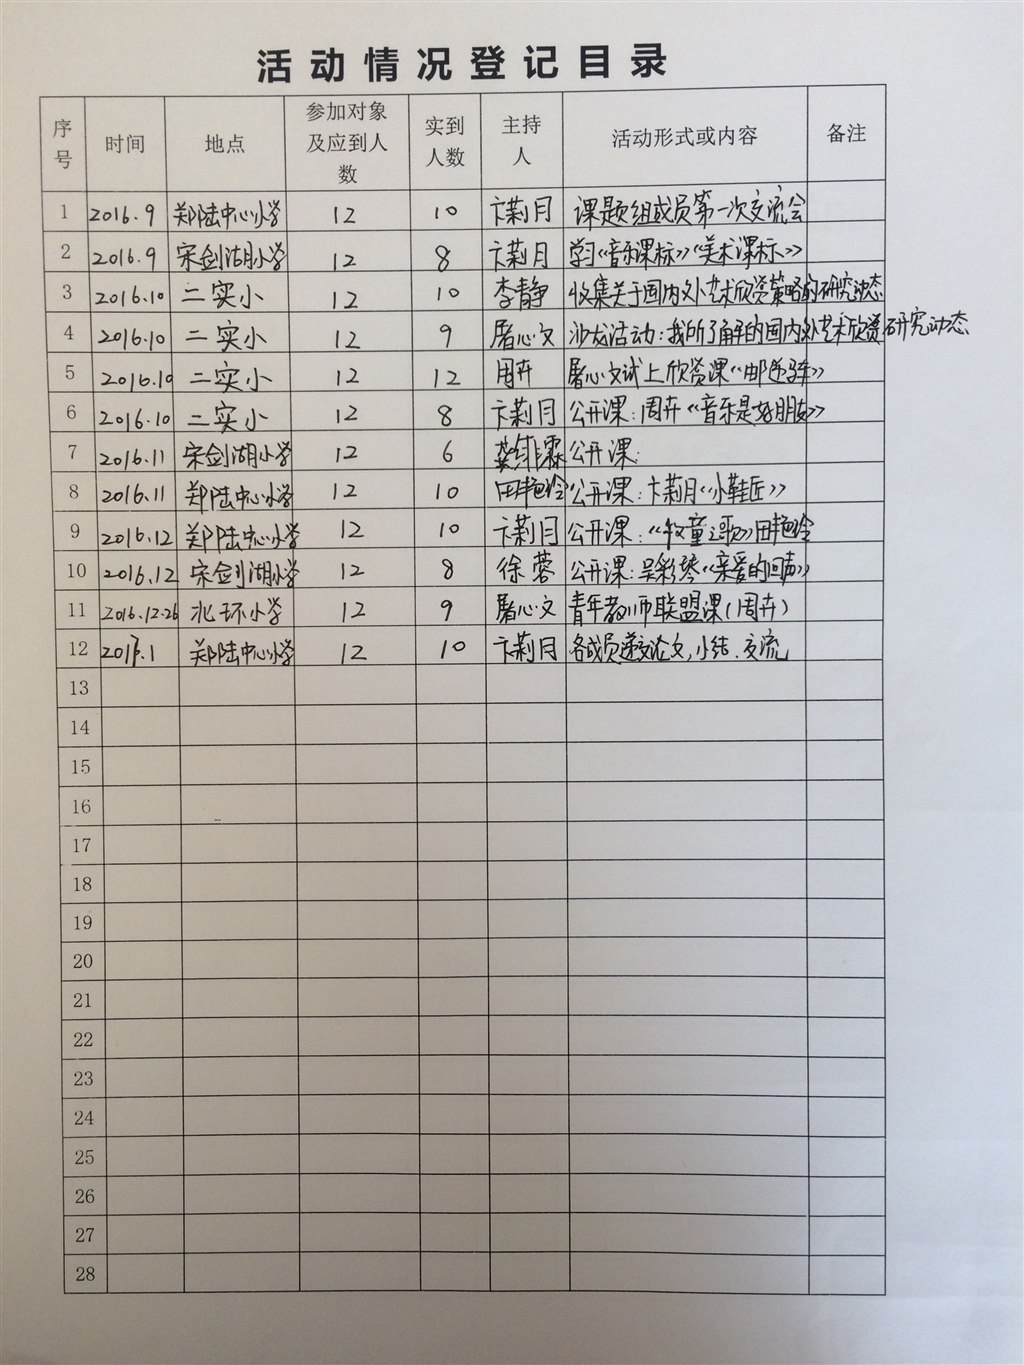 活动情况登记目录
序号 时间 地点 参加对象及应到人数 实到人数 主持人 活动形式或内容 备注
1 2016.9 郑陆中心小学 12 10 卞莉月 课题组成员第一次交流会
2 2016.9 宋剑湖小学 12 8 卞莉月 学习《音乐课标》《美术课标》
3 2016.10 二实小 12 10 李静 收集关于国内外艺术欣赏策略的研究动态
4 2016.10 二实小 12 9 屠心文 沙龙活动:我所了解的国内外艺术欣赏研究动态
5 2016.10 二实小 12 12 周卉 屠心文试上欣赏课《邮递马车》
6 2016.10 二实小 12 8 卞莉月 公开课:周卉《音乐是好朋友》
7 2016.11 宋剑湖小学 12 6 龚霏霖 公开课:
8 2016.11 郑陆中心小学 12 10 田艳玲 公开课:卞莉月《小鞋匠》
9 2016.12 郑陆中心小学 12 10 卞莉月 公开课:《牧童之歌》田艳玲
10 2016.12 宋剑湖小学 12 8 徐蓉 公开课:吴彩琴《亲爱的回声》
11 2016.12.26 北环小学 12 9 屠心文 青年教师联盟课(周卉)
12 2017.1 郑陆中心小学 12 10 卞莉月 各成员递交论文,小结.交流
13
14
15
16
17
18
19
20
21
22
23
24
25
26
27
28